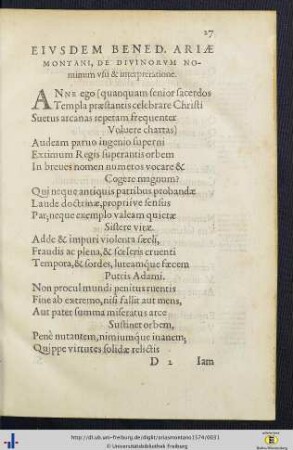 27
EIVSDEM BENED. ARIÆ
MONTANI, DE DIVINORVM NO-
minum vsu & interpretatione.
ANNE ego (quanquam senior sacerdos
Templa præstantis celebrare Christi
Suetus arcanas repetam frequenter
Voluere chartas)
Audeam paruo ingenio superni
Eximum Regis superantis orbem
In breues nomen numeros vocare &
Cogere magnum?
Qui neque antiquis patribus probandæ
Laude doctrinæ, propriive sensus
Par, neque exemplo valeam quietæ
Sistere vitæ.
Adde & impuri violenta sæcli,
Fraudis ac plena, & sceleris cruenti
Tempora, & sordes, luteamque fæcem
Putris Adami.
Non procul mundi penitus ruentis
Fine ab extremo, nisi fallit aut mens,
Aut pater summa miseratus arce
Sustinet orbem,
Penè nutantem, nimiumque inanem,
Quippe virtutes solidæ relictis
D 2 Iam
http://dl.ub.uni-freiburg.de/diglit/ariasmontano1574/0031
© Universitätsbibliothek Freiburg